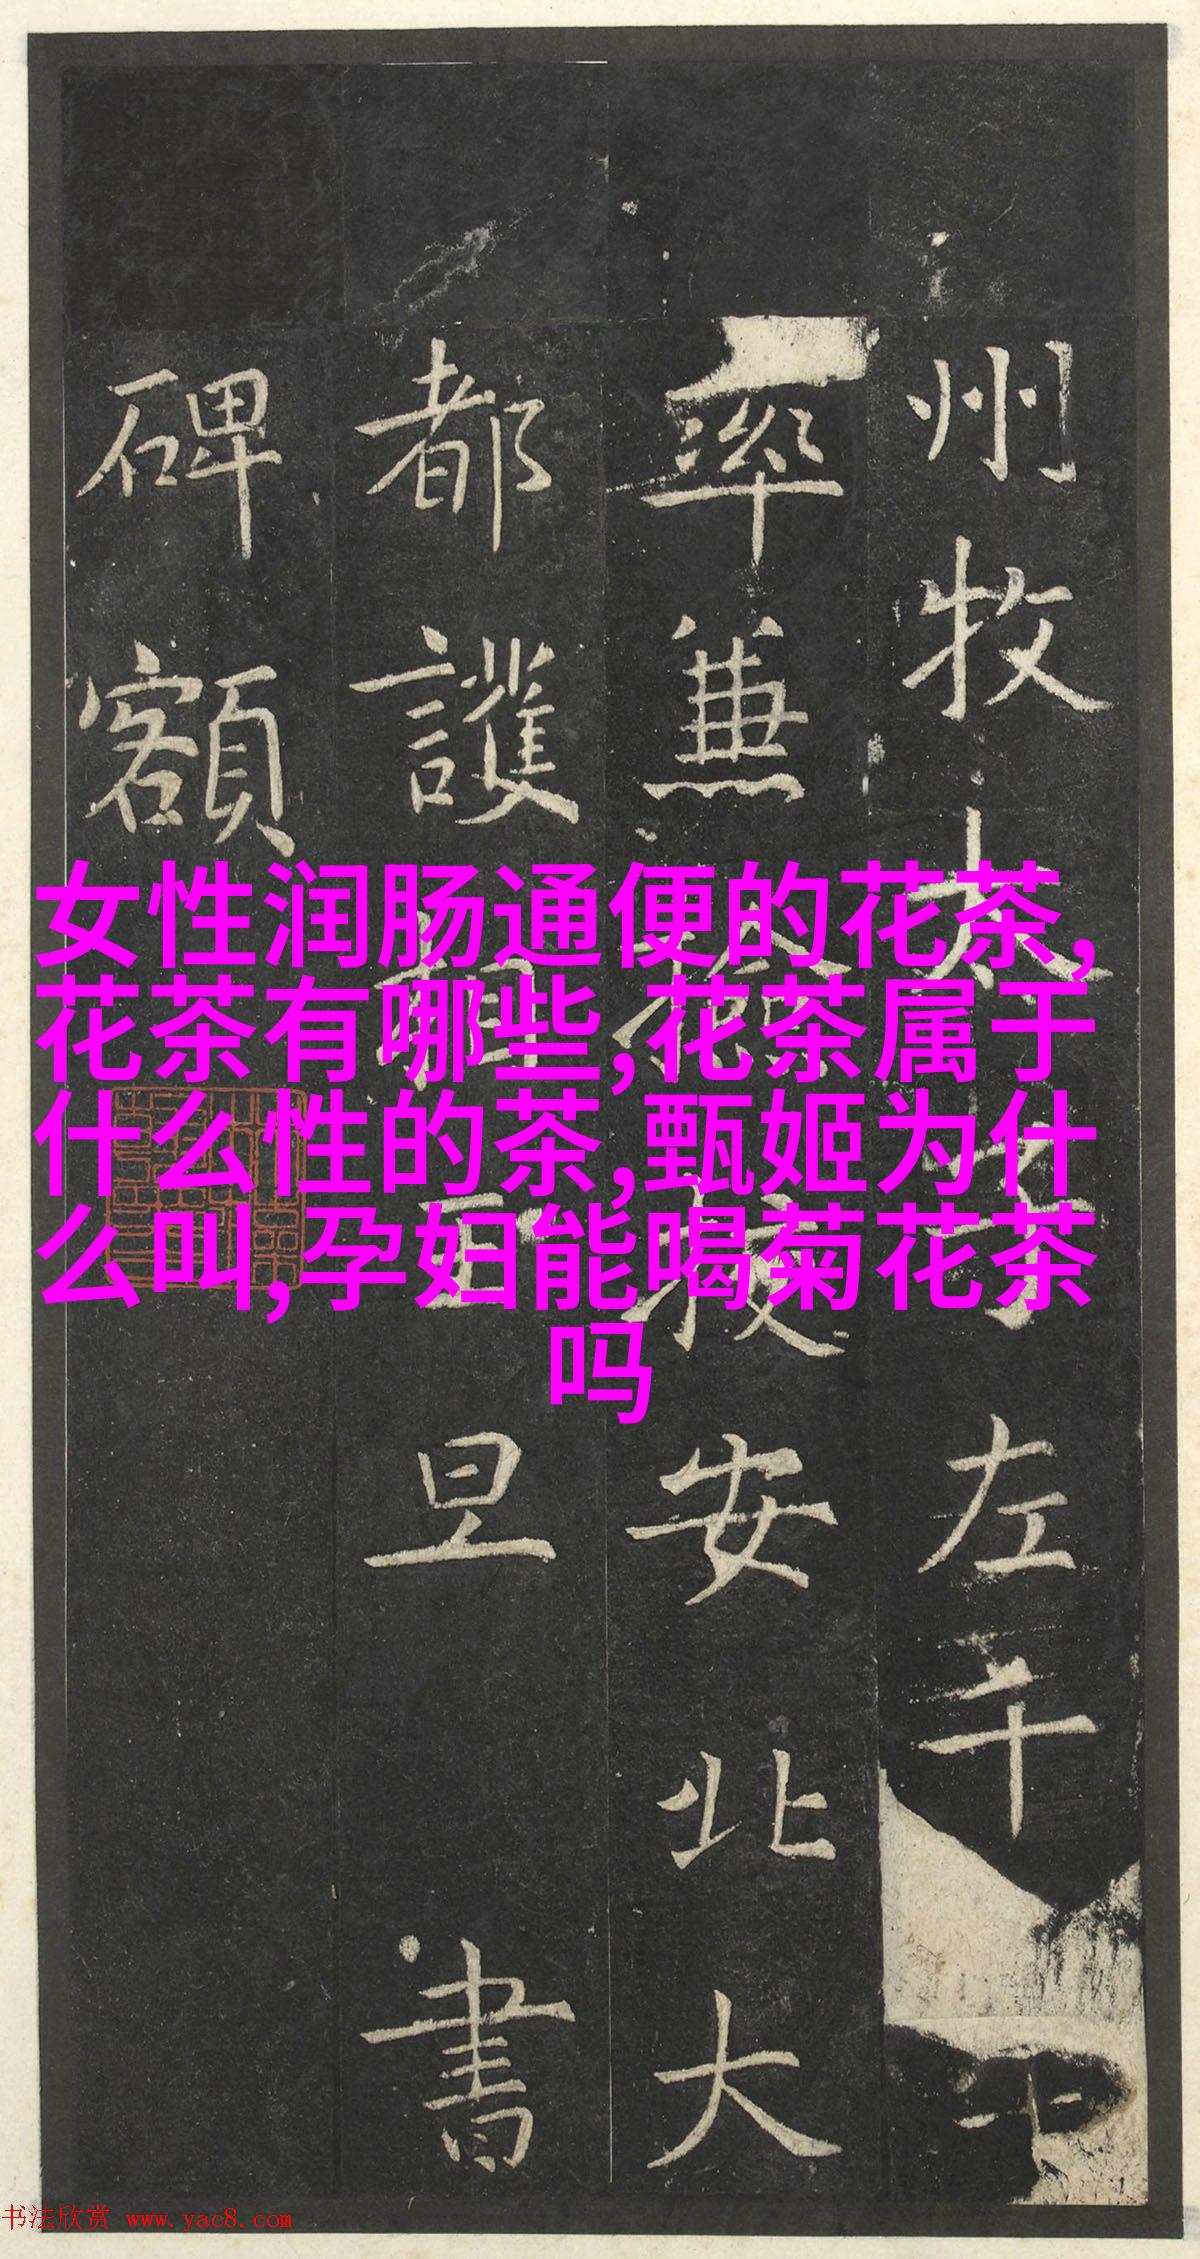 州牧太子左千
率兼檢挍安北大
都護相王旦書
碑額
女性润肠通便的花茶,
花茶有哪些,花茶属于
什么性的茶,甄姬为什
么叫,孕妇能喝菊花茶
吗
书法欣赏 www.yac8.com